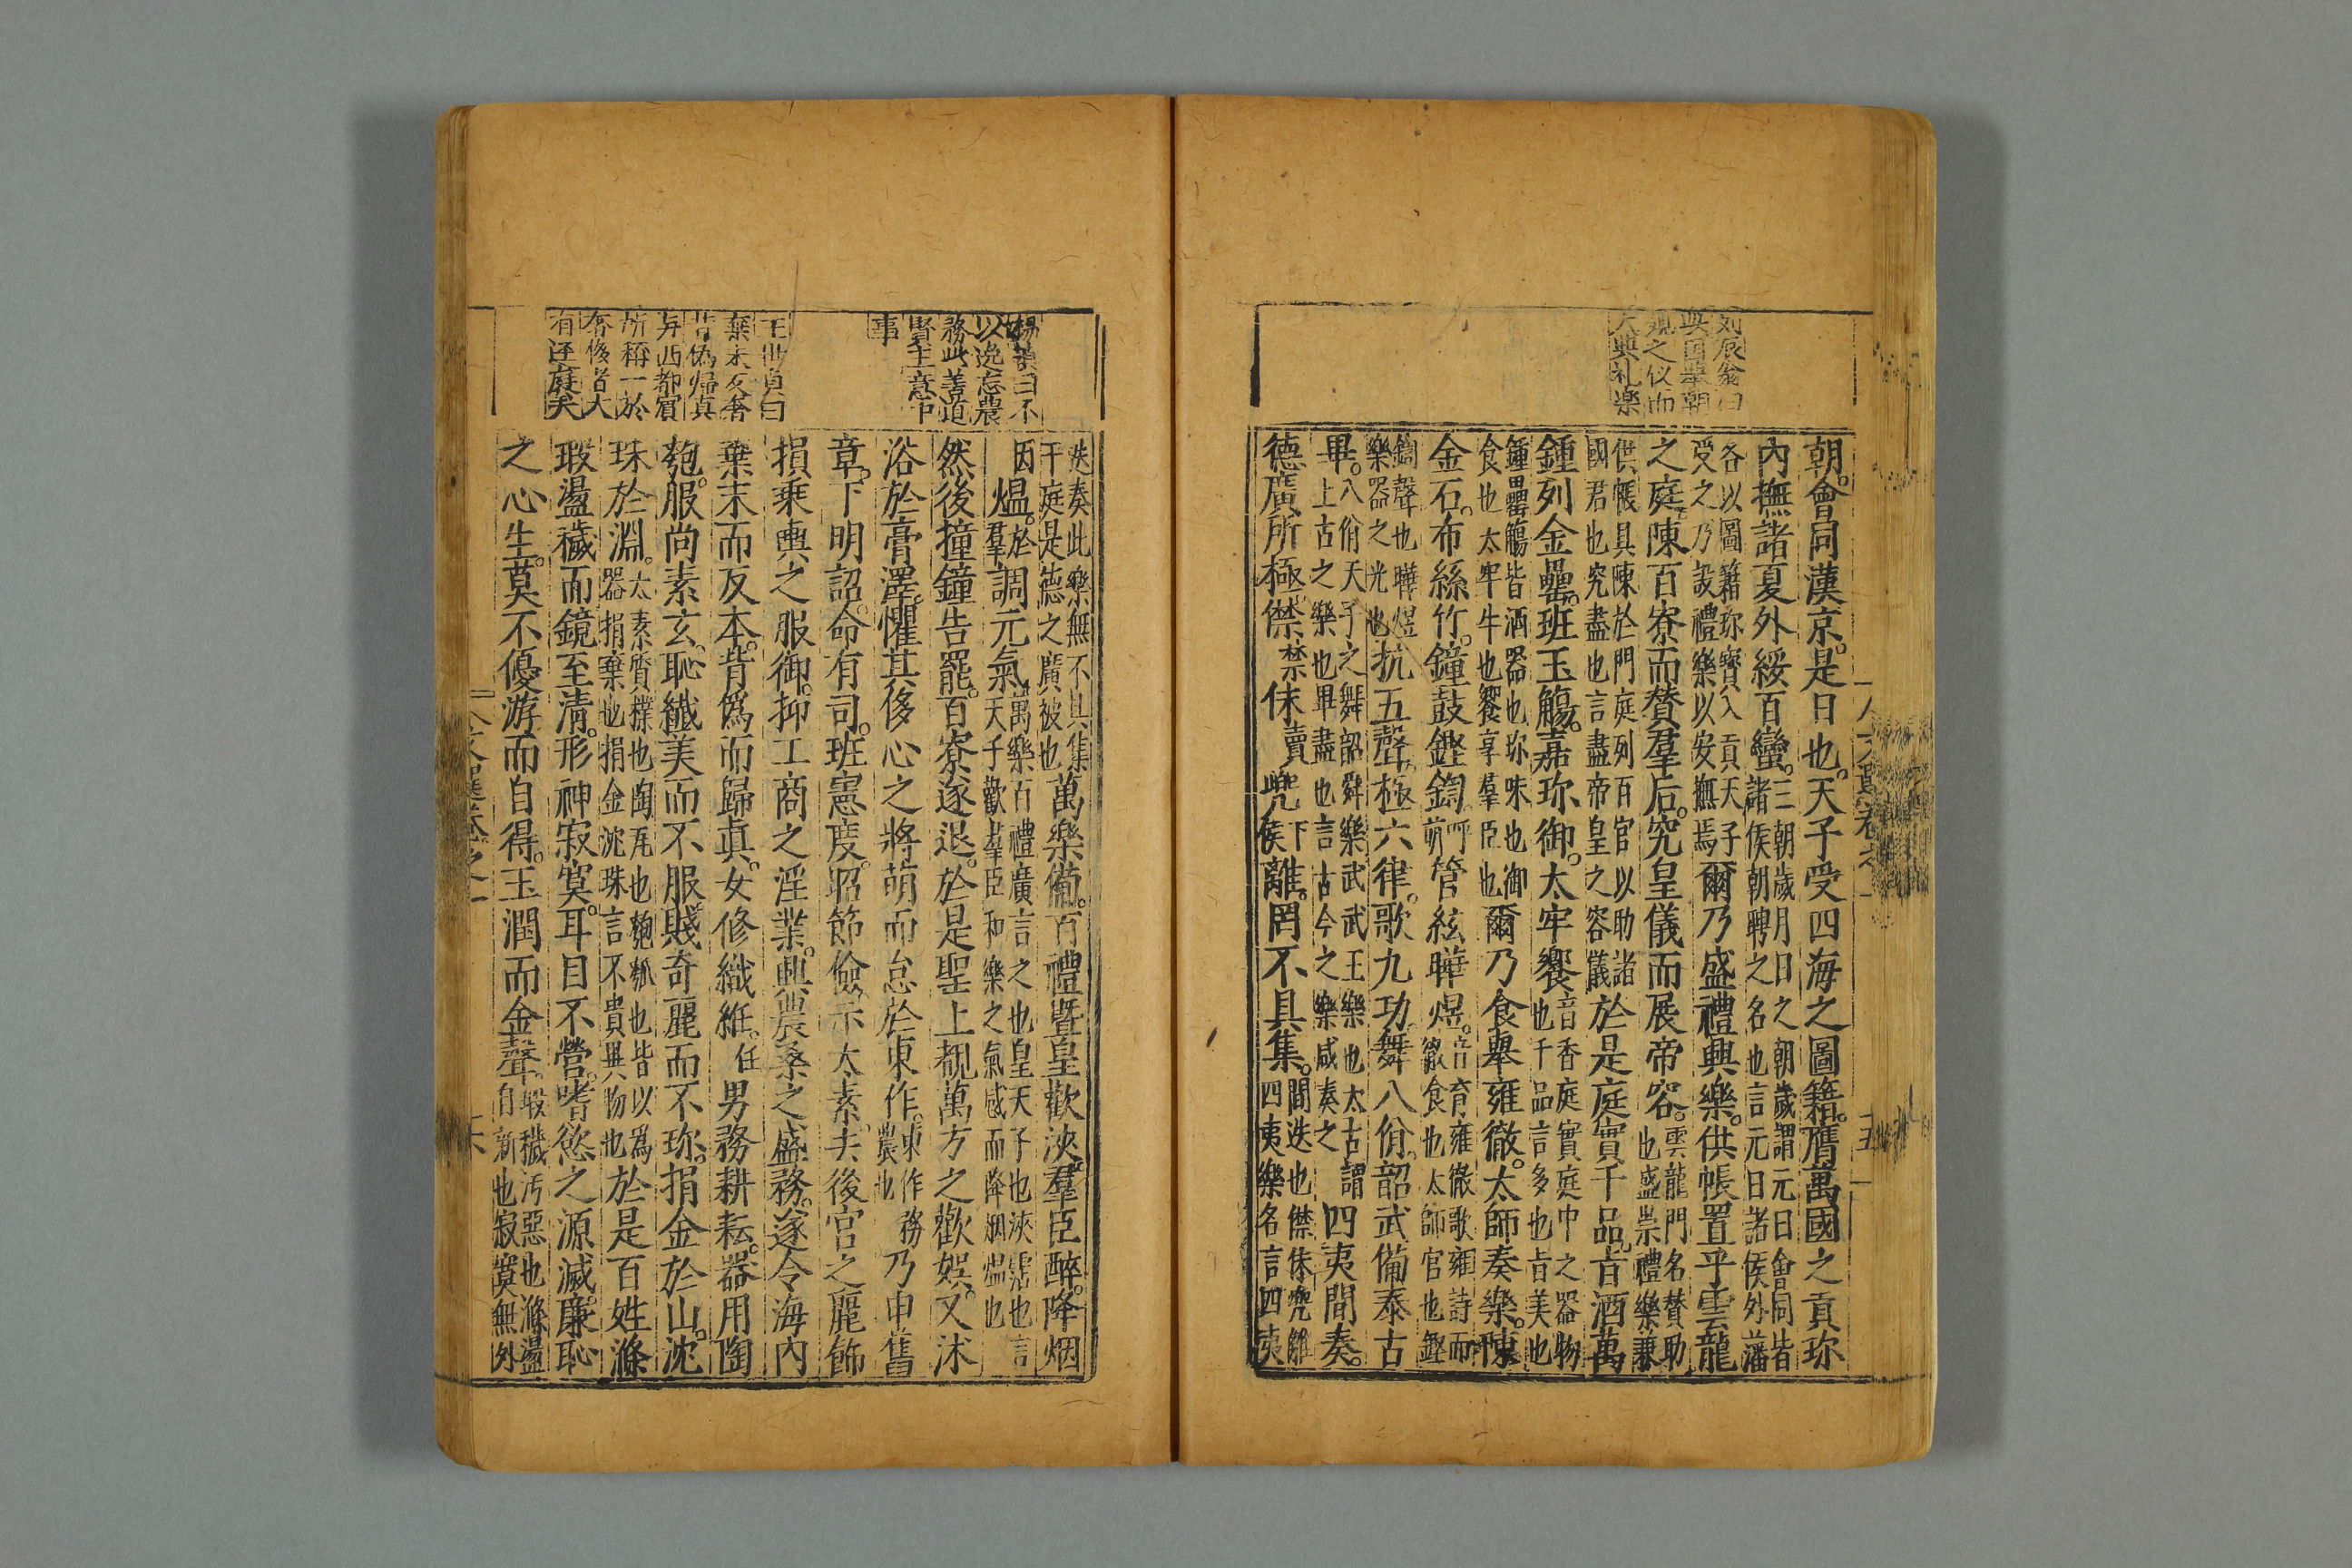 刘辰翁曰
典因舉朝
覲之仪而
大興礼樂
朝會同漢京是日也天子受四海之圖籍膺萬國之貢珎
內撫諸夏外綏百蠻三朝歲月日之朝歲謂元日會同皆諸侯朝聘之名也言元日諸侯外藩
各以圖籍珎寳入貢天子受之乃設禮樂以安撫焉爾乃盛禮興樂供帳置乎雲龍
之庭陳百寮而賛羣后究皇儀而展帝容雲龍門名賛助也盛崇禮樂兼
供帳具陳於門庭列百官以助諸國君也究盡也言盡帝皇之容儀於是庭實千品旨酒萬
鍾列金罍班玉觴嘉珎御太牢饗音香庭實庭中之器物也千品言多也旨美也
鍾罍觴皆酒器也珎味也御食也太牢牛也饗享羣臣也爾乃食舉雍徹太師奏樂陳
金石布絲竹鐘鼓鏗鍧呼萌管絃曄煜音育雍徹歌雍詩而徹食也太師官也鏗
鍧聲也曄煜樂器之光也抗五聲極六律歌九功舞八佾韶武備泰古
畢八佾天子之舞韶舜樂武武王樂也太古謂上古之樂也畢盡也言古今之樂咸奏之四夷間奏
德廣所極傑禁休賣兠離下侯罔不具集間迭也傑休兠離四夷樂名言四夷
楊慎曰不
以逸忘農
務此善道
賢主意中
事
王世貞曰
棄末反奢
背偽歸真
与西都賓
所稱一於
奢侈者大
有逕庭矣
迭奏此樂無不具集干庭是德之廣被也萬樂備百禮曁皇歡浹羣臣醉降烟
因熅於羣調元氣萬樂百禮廣言之也皇天子也浹霑也言天子歡羣臣和樂之氣感而降烟熅也
然後撞鐘告罷百寮遂退於是聖上覩萬方之歡娛又沐
浴於膏澤懼其侈心之將萌而怠於東作東作務農也乃申舊
章下明詔命有司班憲度昭節儉示太素去後宮之麗飾
損乘輿之服御抑工商之淫業興農桑之盛務遂令海內
棄末而反本背偽而歸真女修織紝任男務耕耘器用陶
匏服尚素玄恥纎美而不服賤奇麗而不珎捐金於山沈
珠於淵太素質樸也陶瓦也匏瓠也皆以爲器捐棄也捐金沈珠言不貴異物也於是百姓滌
瑕盪穢而鏡至清形神寂寞耳目不營嗜慾之源滅廉恥
之心生莫不優游而自得玉潤而金聲瑕穢汚惡也滌盪自新也寂寞無外